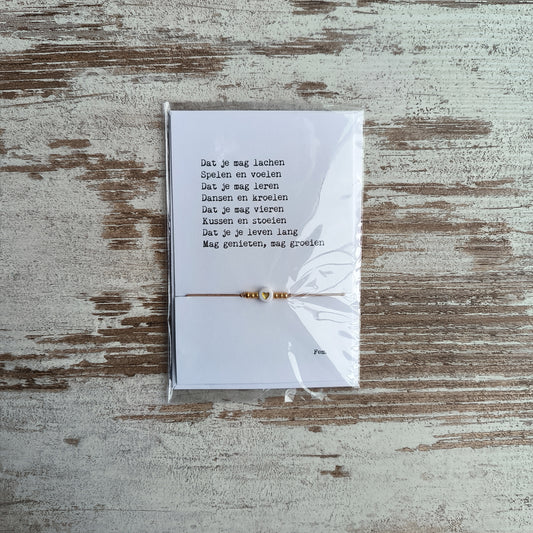 Dat je mag lachen
Spelen en voelen
Dat je mag leren
Dansen en kroelen
Dat je mag vieren
Kussen en stoeien
Dat je je leven lang
Mag genieten, mag groeien